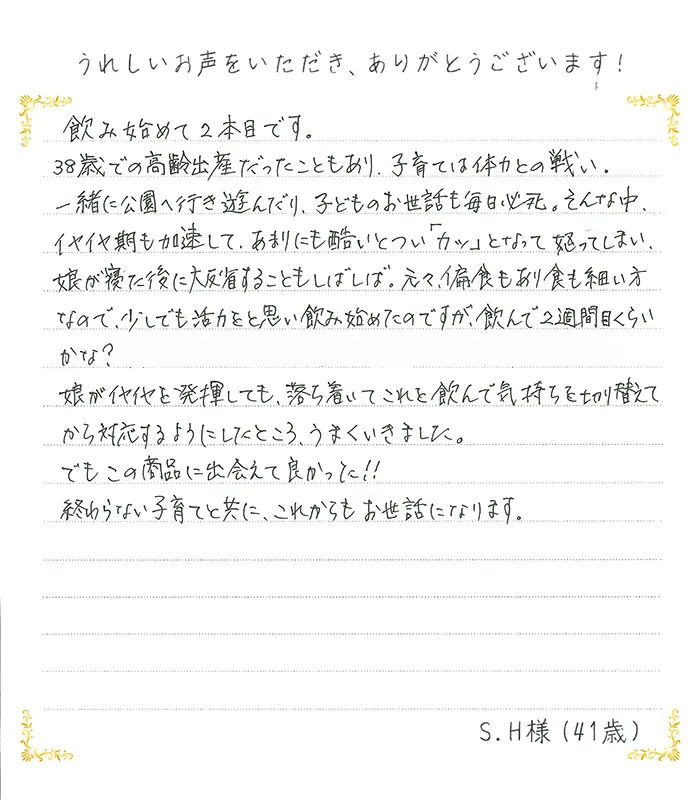 うれしいお声をいただき、ありがとうございます!
飲み始めて2本目です。
38歳での高齢出産だったこともあり、子育ては体力との戦い。
一緒に公園へ行き遊んだり、子どものお世話も毎日必死。そんな中、
イヤイヤ期も加速して、あまりにも酷いとつい「カッ」となって怒ってしまい、
娘が寝た後に大反省することもしばしば。元々、偏食もあり食も細い方
なので、少しでも活力をと思い飲み始めたのですが、飲んで2週間目くらい
かな?
娘がイヤイヤを発揮しても、落ち着いてこれを飲んで気持ちを切り替えて
から対応するようにしたところ、うまくいきました。
でもこの商品に出会えて良かった!!
終わらない子育てと共に、これからもお世話になります。
S.H様(41歳)